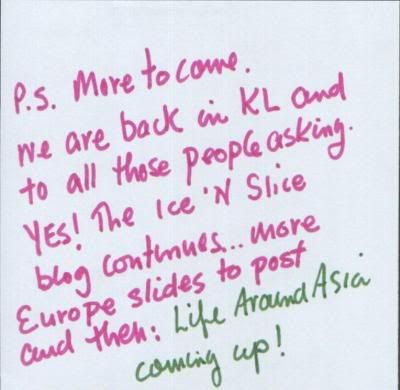 P.S. More to come.
we are back in KL and
to all those people asking.
YES! The Ice 'N Slice
blog continues... more
Europe slides to post
and then: Life Around Asia
coming up!